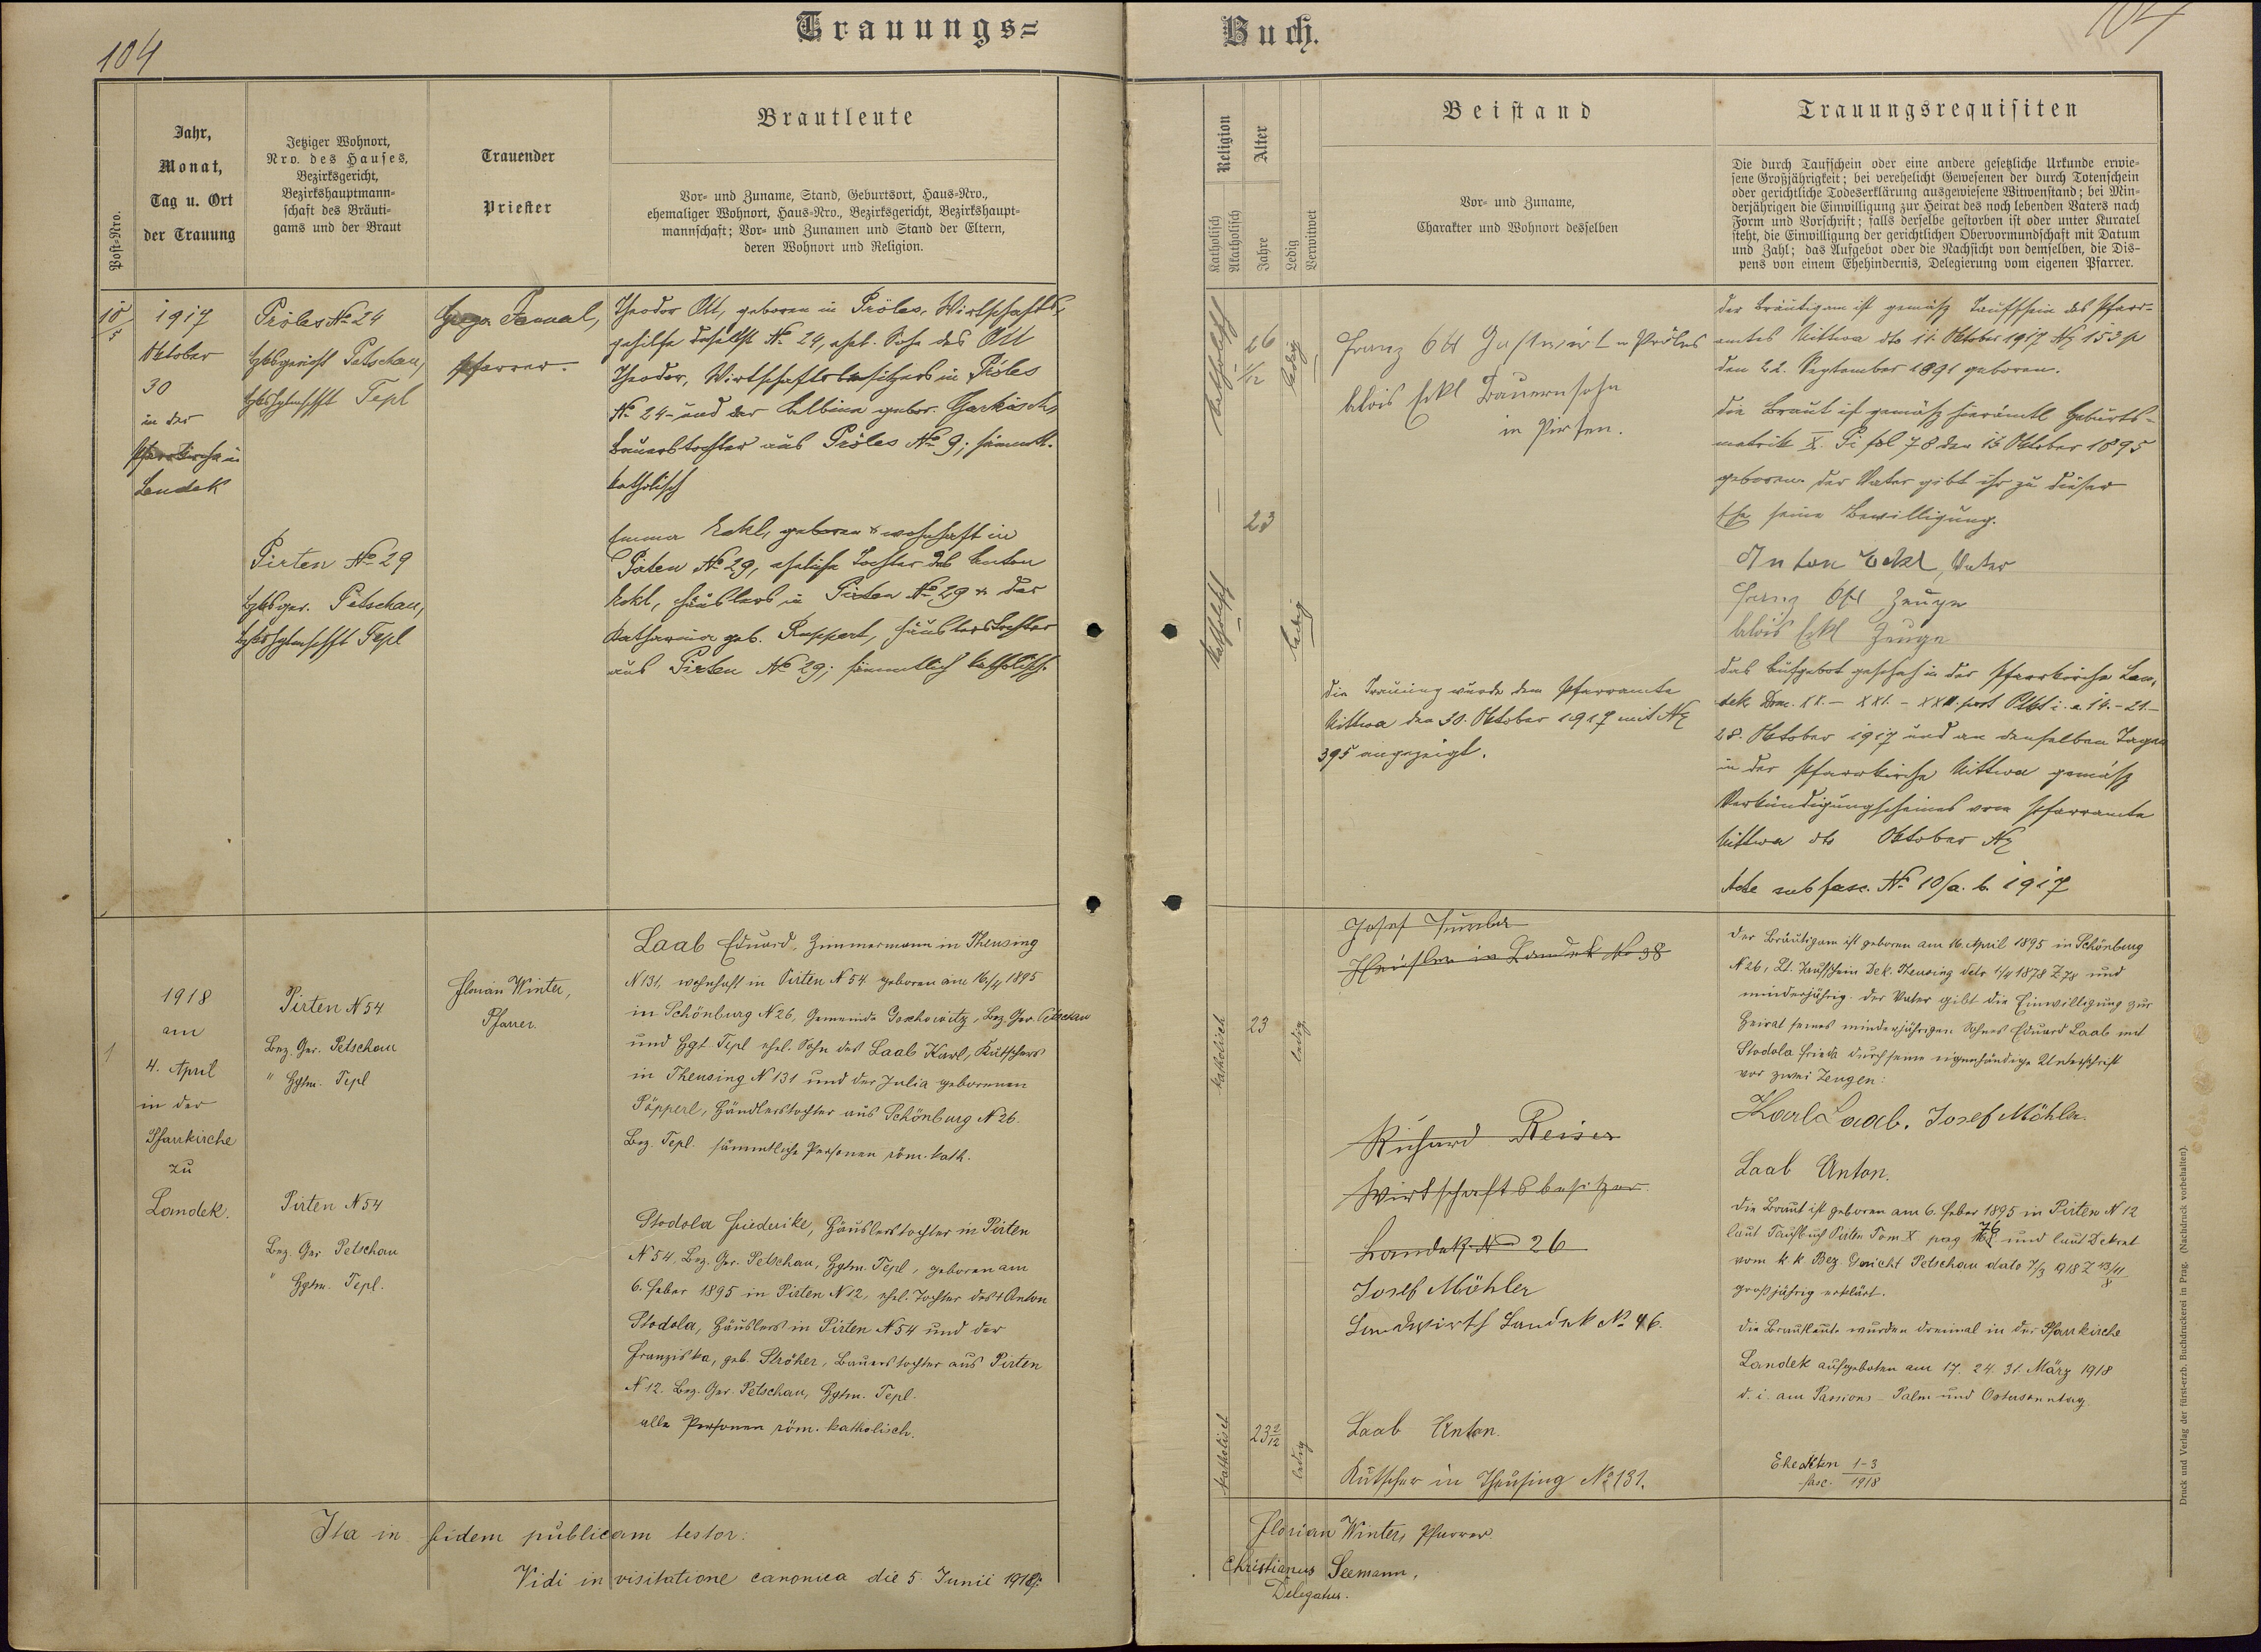 104
Trauungs=
Post=Nro.
Jahr,
Monat,
Tag u. Ort
der Trauung
Jetziger Wohnort,
Nro. des Hauses,
Bezirksgericht,
Bezirkshauptmann=
schaft des Bräuti=
gams und der Braut
Trauender
Priester
Brautleute
Vor= und Zuname, Stand, Geburtsort, Haus=Nro.,
ehemaliger Wohnort, Haus=Nro., Bezirksgericht, Bezirkshaupt=
mannschaft; Vor= und Zunamen und Stand der Eltern,
deren Wohnort und Religion.
10/5
1917
Oktober
30
in der
Pfarrkirche in
Landek
Pröles No 24
Bzksgericht Petschau,
Tepl
Pirten No 29
Bzksger. Petschau,
Tepl
Pfarrer.
Theodor Ott, geboren in Pröles, Wirtschafts-
gehilfe daselbst No 24, ehel. Sohn des Ott
Theodor, Wirtschaftsbesitzers in Pröles
No 24 und der Albina gebor. Garkisch,
Bauerstochter aus Pröles No 9; sämmtl.
katholisch
Emma Eckl, geboren & wohnhaft in
Pirten No 29, eheliche Tochter des Anton
Eckl, Häuslers in Pirten No 29 & der
Katharina geb. Ruppert, Häuslerstochter
aus Pirten No 29; sämmtlich katholisch.
1
1918
am
4. April
in der
Pfarrkirche
zu
Landek.
Pirten N 54
Bez. Ger. Petschau
" Hptm. Tepl
Pirten N 54
Bez. Ger Petschau
" Hptm. Tepl.
Florian Winter,
Pfarrer.
Laab Eduard, Zimmermann in Theusing
N 131, wohnhaft in Pirten N 54 geboren am 16/4 1895
in Schönburg N 26, Gemeinde Goschowitz, Bez. Ger. Petschau
und Hpt. Tepl ehel. Sohn des Laab Karl, Kutschers
in Theusing N 131 und der Julia geborenen
Pöpperl, Händlerstochter aus Schönburg N 26.
Bez. Tepl. sämmtliche Personen röm. kath.
Stodola Friederike, Häuslerstochter in Pirten
N 54, Bez. Ger. Petschau, Hptm. Tepl, geboren am
6. Feber 1895 in Pirten N 12, ehel. Tochter des + Anton
Stodola, Häuslers in Pirten N 54 und der
Franziska, geb. Ströher, Bauerstochter aus Pirten
N 12. Bez. Ger. Petschau, Hptm. Tepl.
alle Personen röm. katholisch.
Ita in fidem publicam testor:
Vidi in visitatione canonica die 5. Junii 1918.
Buch.
104
Religion
Katholisch
Akatholisch
Alter
Jahre
Ledig
Verwitwet
Beistand
Vor= und Zuname,
Charakter und Wohnort desselben
Trauungsrequisiten
Die durch Taufschein oder eine andere gesetzliche Urkunde erwie=
sene Großjährigkeit; bei verehelicht Gewesenen der durch Totenschein
oder gerichtliche Todeserklärung ausgewiesene Witwenstand; bei Min=
derjährigen die Einwilligung zur Heirat des noch lebenden Vaters nach
Form und Vorschrift; falls derselbe gestorben ist oder unter Kuratel
steht, die Einwilligung der gerichtlichen Obervormundschaft mit Datum
und Zahl; das Aufgebot oder die Nachsicht von demselben, die Dis=
pens von einem Ehehindernis, Delegierung vom eigenen Pfarrer.
katholisch
26 1/12
ledig
Franz Ott Gastwirt in Pröles
Alois Eckl Bauernsohn
in Pirten.
katholisch
23
ledig
Die Trauung wurde dem Pfarramte
Uittwa den 30. Oktober 1917 mit
395 angezeigt.
Der Bräutigam ist gemäß Taufschein des Pfarr-
amtes Uittwa dto 11. Oktober 1917 153 p
den 22. September 1891 geboren.
Die Braut ist gemäß hierämtl Geburts-
matrik X. Pi fol 78 den 13 Oktober 1895
geboren. Der Vater gibt ihr zu dieser
Ehe seine Bewilligung.
Anton Eckl, Vater
Franz Ott Zeuge
Alois Eckl Zeuge
Das Aufgebot geschah in der Pfarrkirche Lan-
dek Dom. XX. - XXI. - XXII. post i. e. 14. - 21. -
28. Oktober 1917 und an denselben Tagen
in der Pfarrkirche Uittwa gemäß
Verkündigungscheines vom Pfarramte
Uittwa dto Oktober
Acte sub fasc. No 10/a. b. 1917
katholisch
23
ledig
Josef
Häusler in Landek No 38
Richard Reiser
Wirtschaftsbesitzer
Landek N 26
Josef Möhler
Landwirth Landek No 46.
katholisch
23 2/12
ledig
Laab Anton.
Kutscher in Theusing No 131.
Der Bräutigam ist geboren am 16. April 1895 in Schönburg
N 26, Lt. Taufschein Dek. Theusing 1878 Z 78 und
minderjährig. Der Vater gibt die Einwilligung zur
Heirat seines minderjährigen Sohnes Eduard Laab mit
Stodola Frieda durch seine eigenhändige Unterschrift
vor zwei Zeugen:
Karl Laab. Josef Möhler.
Laab Anton.
Die Braut ist geboren am 6. Feber 1895 in Pirten N 12
laut Taufbuch Pirten Tom X. pag 76 und laut Dekret
vom k k Bez Gericht Petschau dato 7/3 1918 Z 13/11 8
großjährig erklärt.
Die Brautleute wurden dreimal in der Pfarrkirche
Landek aufgeboten am 17. 24. 31. März 1918
d. i. am Passions - Palm und Ostersonntag.
Eheakten 1-3
fasc. 1918
Florian Winter, Pfarrer.
Christianus Seemann,
Delegatus.
Druck und Verlag der fürst-erzb. Buchdruckerei in Prag. (Nachdruck vorbehalten).